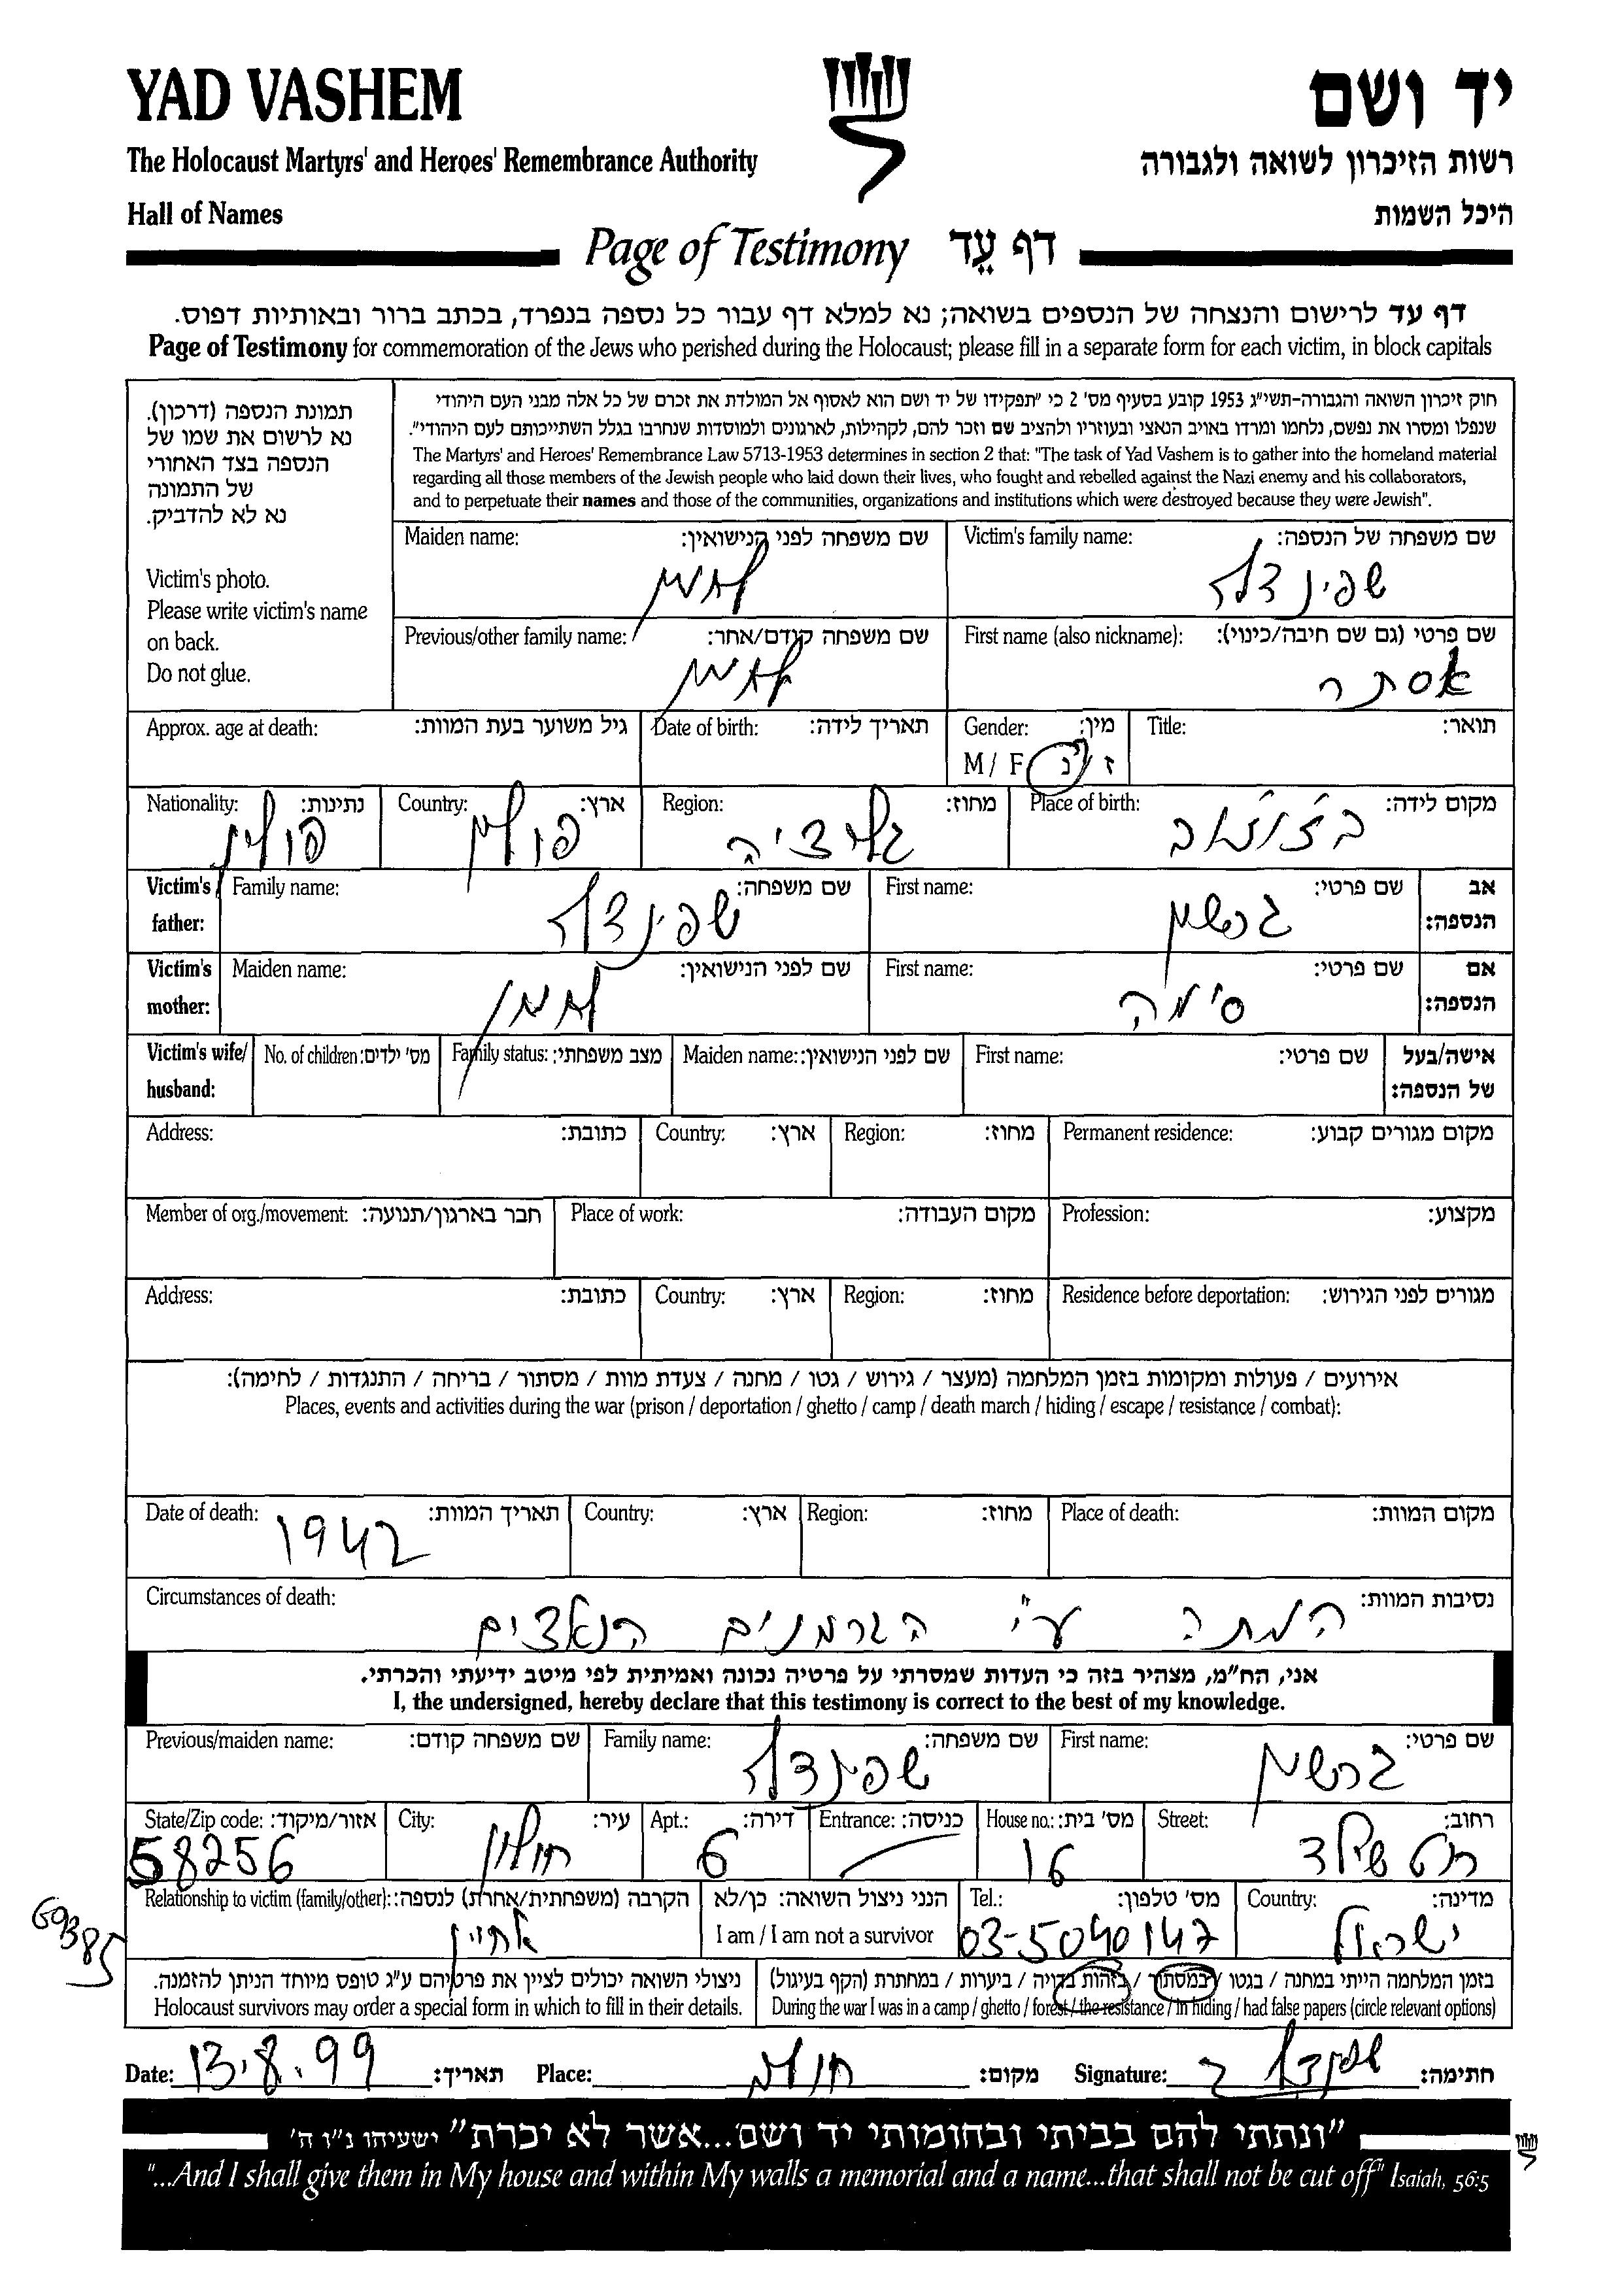 YAD VASHEM
יד ושם
The Holocaust Martyrs' and Heroes' Remembrance Authority
רשות הזיכרון לשואה ולגבורה
Hall of Names
היכל השמות
Page of Testimony דף עֵד
דף עד לרישום והנצחה של הנספים בשואה; נא למלא דף עבור כל נספה בנפרד, בכתב ברור ובאותיות דפוס.
Page of Testimony for commemoration of the Jews who perished during the Holocaust; please fill in a separate form for each victim, in block capitals
תמונת הנספה (דרכון).
נא לרשום את שמו של
הנספה בצד האחורי
של התמונה
נא לא להדביק.
Victim's photo.
Please write victim's name
on back.
Do not glue.
חוק זיכרון השואה והגבורה-תשי"ג 1953 קובע בסעיף מס' 2 כי "תפקידו של יד ושם הוא לאסוף אל המולדת את זכרם של כל אלה מבני העם היהודי
שנפלו ומסרו את נפשם, נלחמו ומרדו באויב הנאצי ובעוזריו ולהציב שם וזכר להם, לקהילות, לארגונים ולמוסדות שנחרבו בגלל השתייכותם לעם היהודי".
The Martyrs' and Heroes' Remembrance Law 5713-1953 determines in section 2 that: "The task of Yad Vashem is to gather into the homeland material
regarding all those members of the Jewish people who laid down their lives, who fought and rebelled against the Nazi enemy and his collaborators,
and to perpetuate their names and those of the communities, organizations and institutions which were destroyed because they were Jewish".
Victim's family name: שם משפחה של הנספה:
שפינדל
Maiden name: שם משפחה לפני הנישואין:
First name (also nickname): שם פרטי (גם שם חיבה/כינוי):
אסתר
Previous/other family name: שם משפחה קודם/אחר:
Title: תואר:
Gender: מין:
M / F ז / נ
Date of birth: תאריך לידה:
Approx. age at death: גיל משוער בעת המוות:
Place of birth: מקום לידה:
Region: מחוז:
גליציה
Country: ארץ:
פולין
Nationality: נתינות:
פולין
Victim's father: אב הנספה:
First name: שם פרטי:
גרשון
Family name: שם משפחה:
שפינדל
Victim's mother: אם הנספה:
First name: שם פרטי:
סימה
Maiden name: שם לפני הנישואין:
Victim's wife/ husband: אישה/בעל של הנספה:
First name: שם פרטי:
Maiden name: שם לפני הנישואין:
Family status: מצב משפחתי:
No. of children: מס' ילדים:
Permanent residence: מקום מגורים קבוע:
Region: מחוז:
Country: ארץ:
Address: כתובת:
Profession: מקצוע:
Place of work: מקום העבודה:
Member of org./movement: חבר בארגון/תנועה:
Residence before deportation: מגורים לפני הגירוש:
Region: מחוז:
Country: ארץ:
Address: כתובת:
אירועים / פעולות ומקומות בזמן המלחמה (מעצר / גירוש / גטו / מחנה / צעדת מוות / מסתור / בריחה / התנגדות / לחימה):
Places, events and activities during the war (prison / deportation / ghetto / camp / death march / hiding / escape / resistance / combat):
Place of death: מקום המוות:
Region: מחוז:
Country: ארץ:
Date of death: תאריך המוות:
1942
Circumstances of death: נסיבות המוות:
המתה ע"י הגרמנים הנאצים
אני, הח"מ, מצהיר בזה כי העדות שמסרתי על פרטיה נכונה ואמיתית לפי מיטב ידיעתי והכרתי.
I, the undersigned, hereby declare that this testimony is correct to the best of my knowledge.
First name: שם פרטי:
גרשון
Family name: שם משפחה:
שפינדל
Previous/maiden name: שם משפחה קודם:
Street: רחוב:
House no.: מס' בית:
16
Entrance: כניסה:
Apt.: דירה:
6
City: עיר:
חולון
State/Zip code: אזור/מיקוד:
58256
Country: מדינה:
ישראל
Tel.: מס' טלפון:
03-5040147
הנני ניצול השואה: כן/לא
I am / I am not a survivor
Relationship to victim (family/other): הקרבה (משפחתית/אחרת) לנספה:
אחיין
69385
בזמן המלחמה הייתי במחנה / בגטו / במסתור / בזהות בדויה / ביערות / במחתרת (הקף בעיגול)
During the war I was in a camp / ghetto / forest / the resistance / in hiding / had false papers (circle relevant options)
ניצולי השואה יכולים לציין את פרטיהם ע"ג טופס מיוחד הניתן להזמנה.
Holocaust survivors may order a special form in which to fill in their details.
Date: 13.8.99 תאריך:
Place: חולון מקום:
Signature: שפינדל ג חתימה:
"ונתתי להם בביתי ובחומותי יד ושם...אשר לא יכרת" ישעיהו נ"ו ה'
"...And I shall give them in My house and within My walls a memorial and a name...that shall not be cut off" Isaiah, 56:5